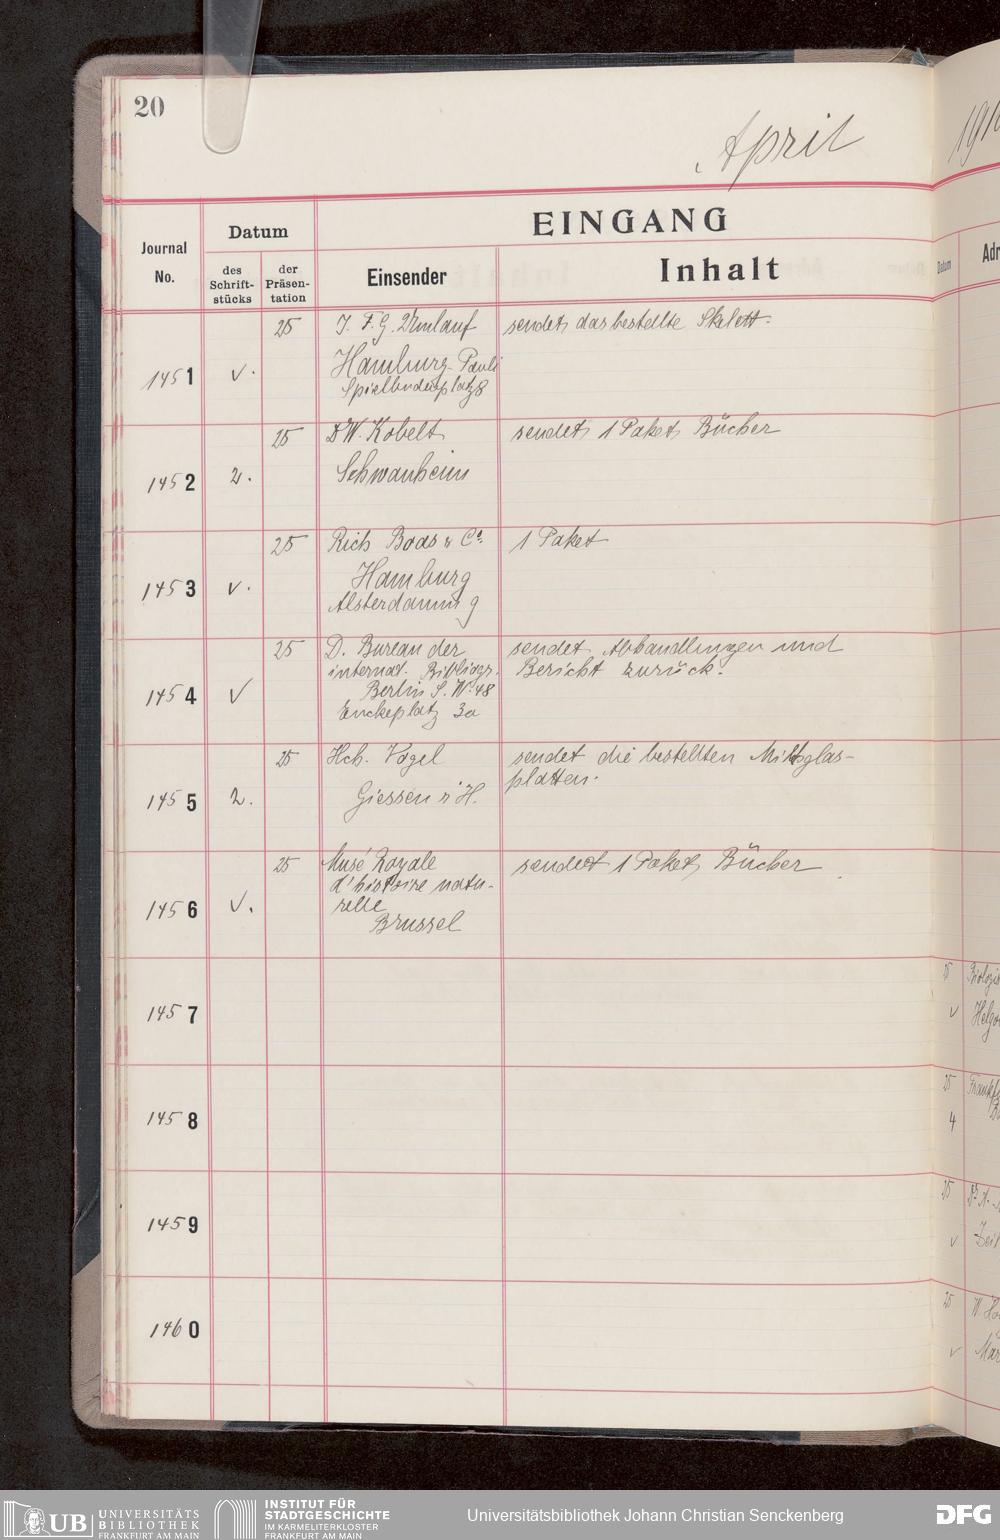 20
April
191
EINGANG
Journal No.
Datum
des Schrift-stücks
der Präsen-tation
Einsender
Inhalt
Datum
Adr
25 J. F. G. Umlauf sendet das bestellte Skelett.
Hamburg Pauli
1451 v. Spielbudenplatz 8
25 Dr W. Kobelt sendet 1 Paket Bücher
1452 2. Schwanheim
25 Rich Boas & Co. 1 Paket
Hamburg
1453 v. Alsterdamm 9
25 D. Bureau der sendet Abhandlungen und
internat. Bibliogr. Bericht zurück.
1454 v Berlin S. W. 48
Enckeplatz 3a
25 Hch. Vogel sendet die bestellten Milchglas-
platten.
1455 2. Giessen
25 Musé Royale sendet 1 Paket Bücher
d'histoire natu-
1456 v. relle
Brussel
1457
1458
1459
1460
25
v
25
4
25
v
25
v
UB
UNIVERSITÄTS
BIBLIOTHEK
FRANKFURT AM MAIN
INSTITUT FÜR
STADTGESCHICHTE
IM KARMELITERKLOSTER
FRANKFURT AM MAIN
Universitätsbibliothek Johann Christian Senckenberg
DFG